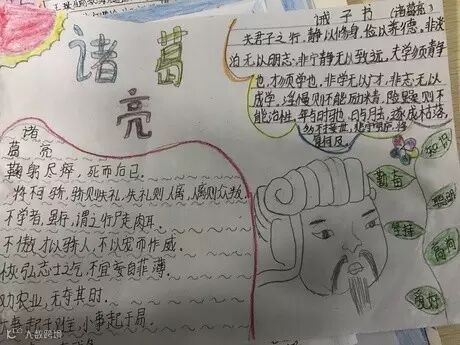 诸葛亮
诫子书 (诸葛亮)
夫君子之行,静以修身,俭以养德,非淡
泊无以明志,非宁静无以致远,夫学须静
也,才须学也,非学无以广才,非志无以
成学,淫慢则不能励精,险躁则不
能治性,年与时驰,意与日去,遂成枯落,
多不接世,悲守穷庐,将
复何及
诸
葛亮
鞠躬尽瘁,死而后已.
将不可骄,骄则失礼,失礼则人离,离则众叛.
不学者,
不傲才以骄人,不以宠而作威.
恢弘志士之气,不宜妄自菲薄.
劝农业,无夺其时.
大事起于难,小事起于易.
知识
勤奋
聪明
坚持
商有
商好
九数跨境